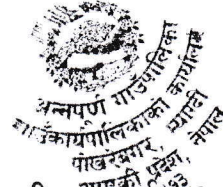 अन्नपूर्ण गाउँपालिका
गाउँकार्यपालिकाको कार्यालय
पोखरेबगर, म्याग्दी
गण्डकी प्रदेश, नेपाल